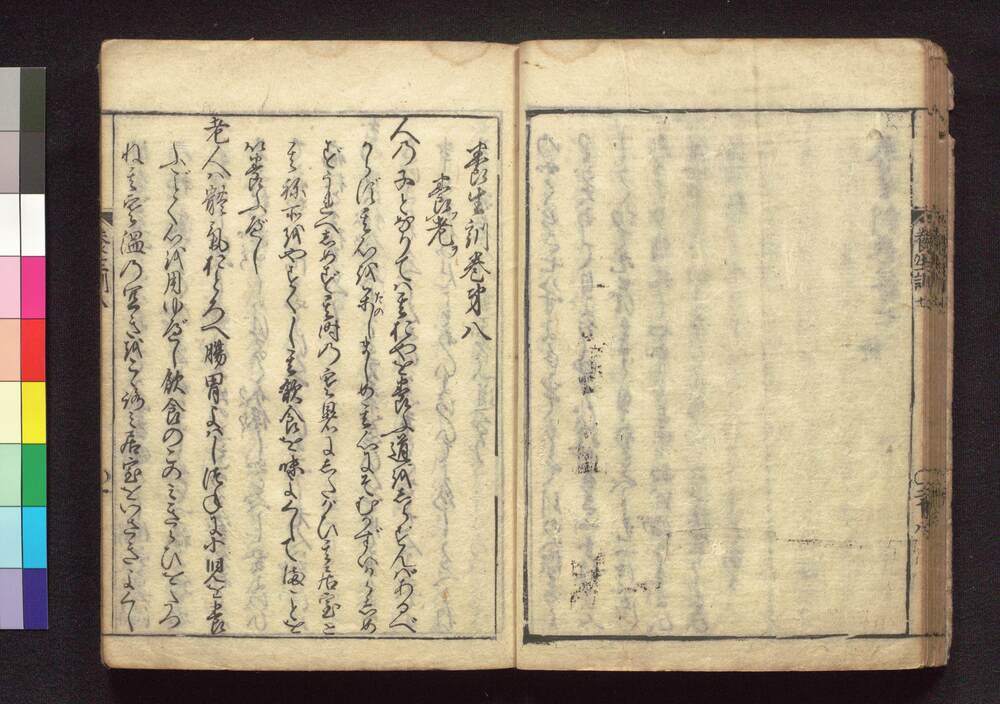 養生訓巻第八
養老
人の子となりては其おやを養ふ道をしらずんばあるべ
からず其心を楽しましめ其心にそむかずいからしめ
ずうれへしめず其時の寒暑にしたがひ其居室と
其祢所をやすくし其飲食を味よくしてまことを
以養ふべし
老人は體気おとろへ腸胃よはしつねに小児を養
ふごとく心を用ゆべし飲食のこのみきらひをたづ
ね其寒温の宜きをこころみ居室をいさぎよくし
養生訓 七